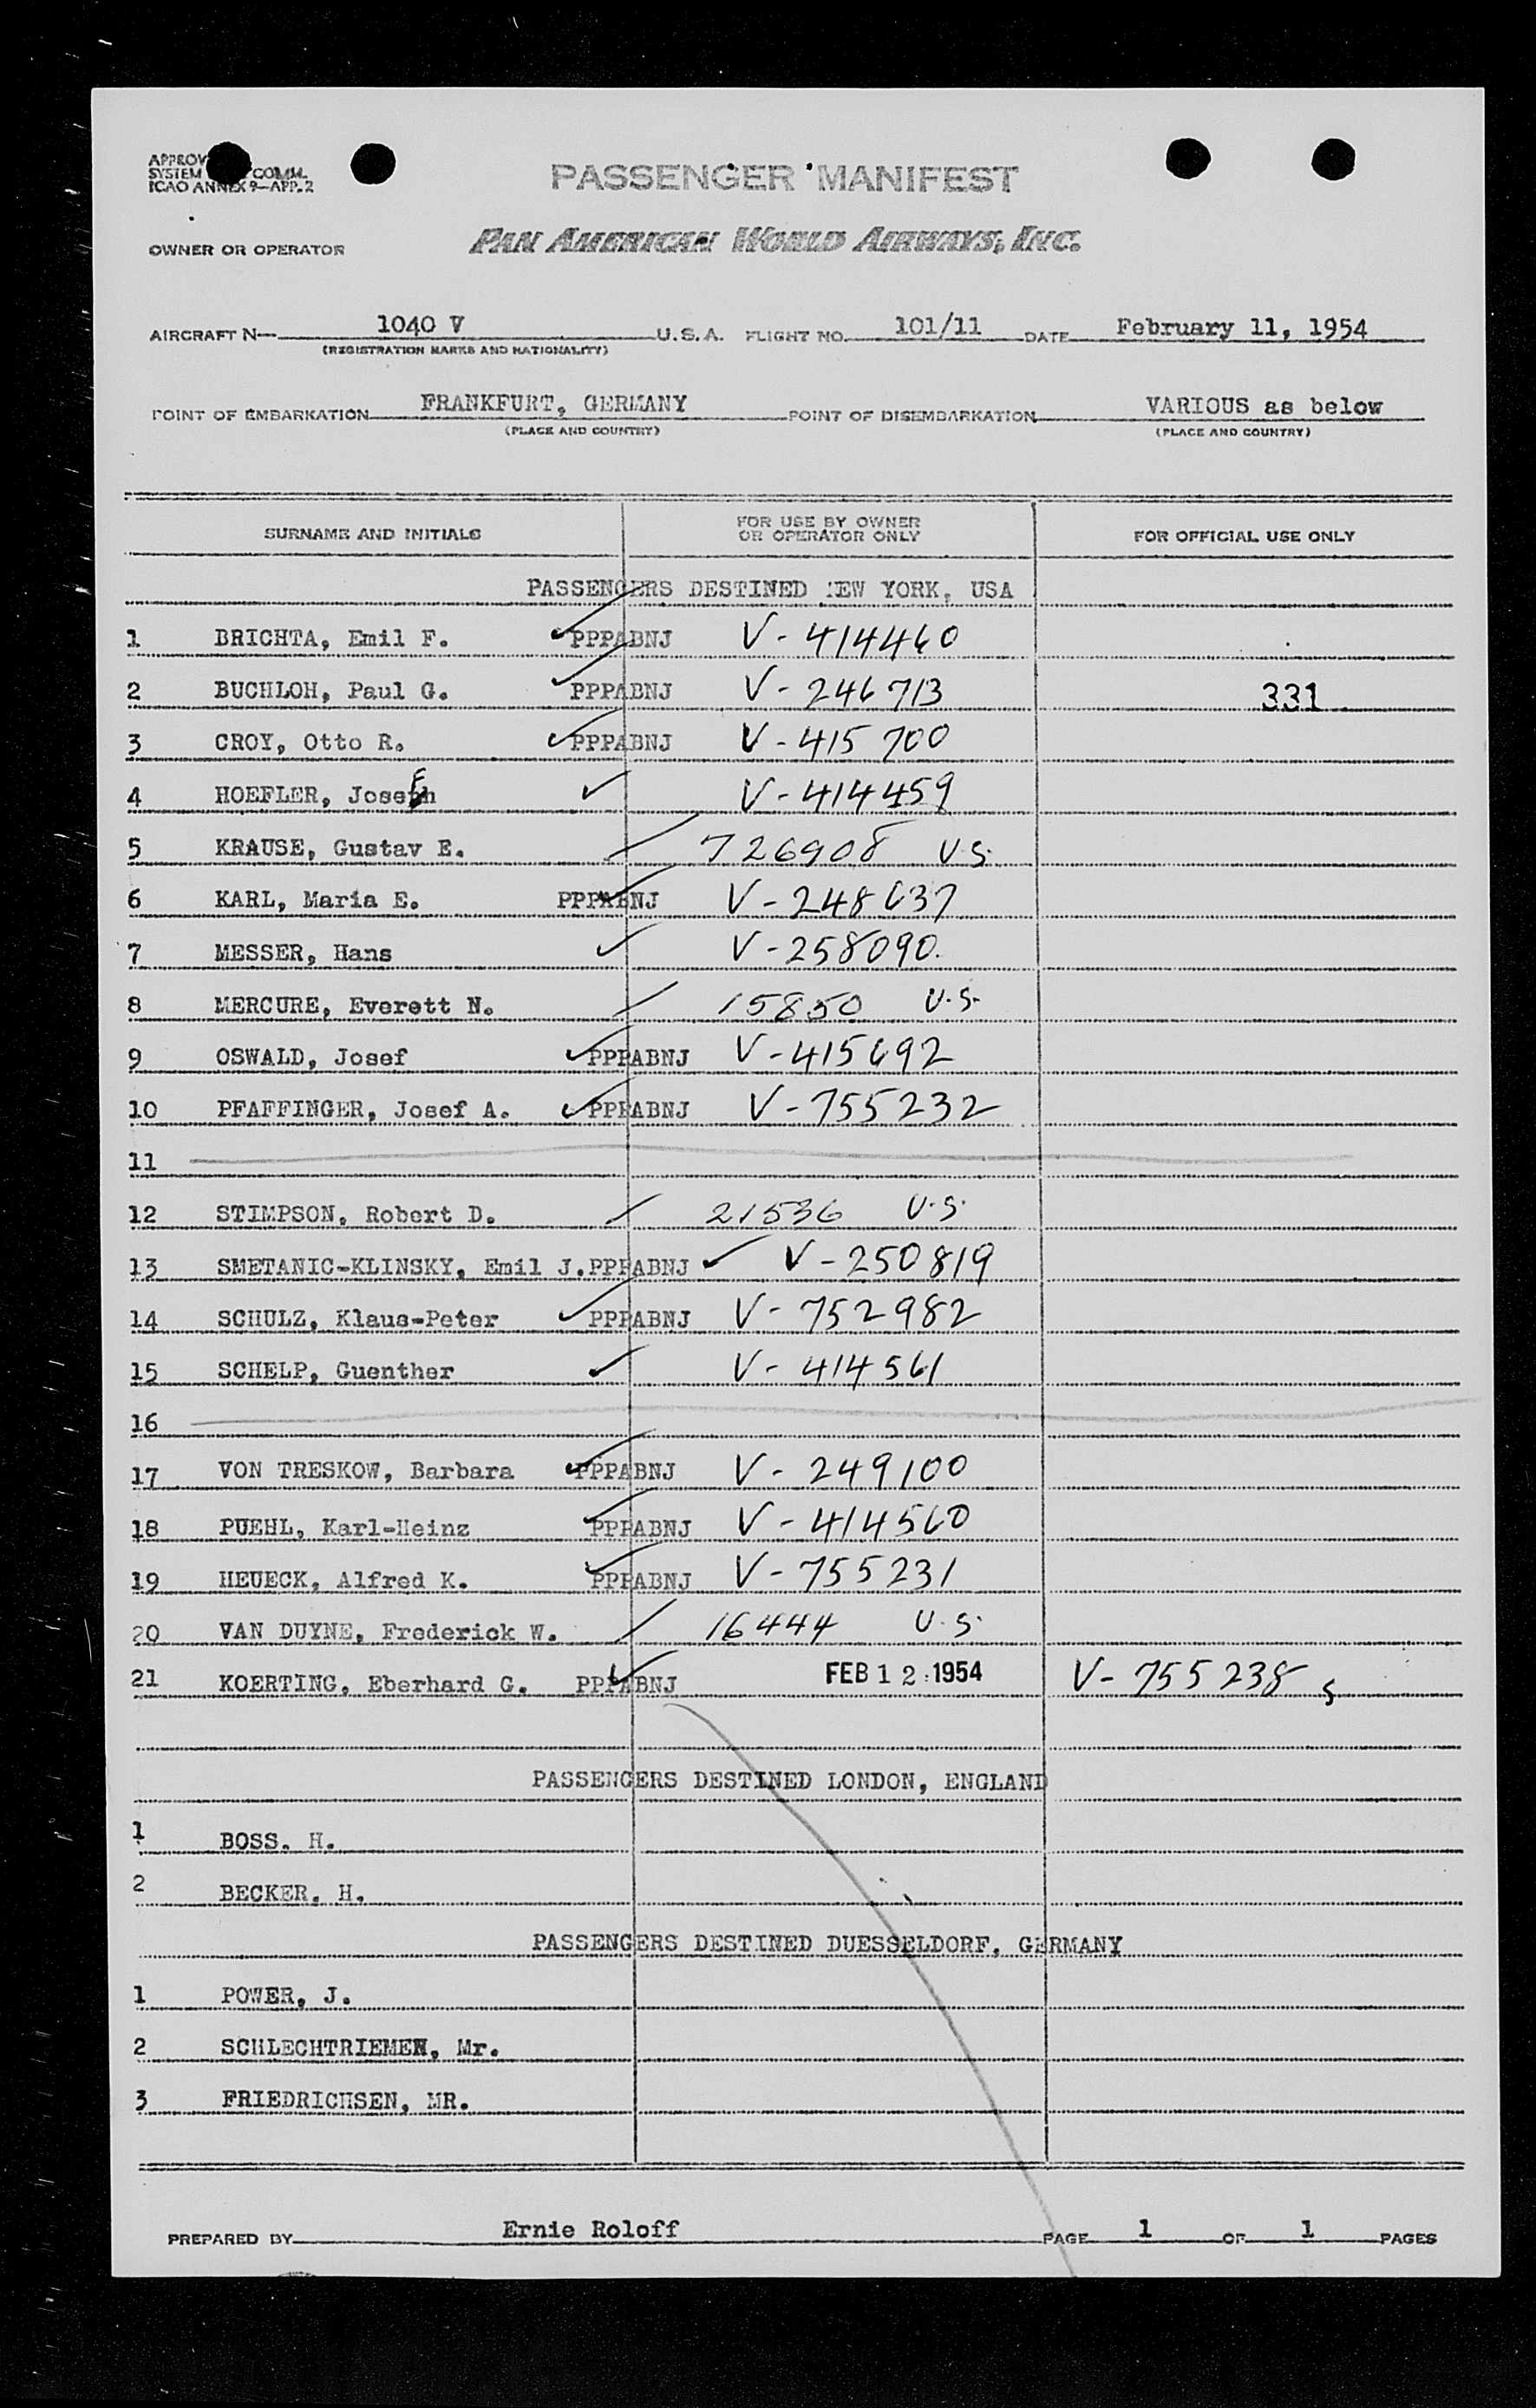 PASSENGER MANIFEST
SYSTEM COMM.
ICAO ANNEX 9—APP. 2
OWNER OR OPERATOR PAN AMERICAN WORLD AIRWAYS, INC.
AIRCRAFT N— 1040 V U.S.A. FLIGHT NO. 101/11 DATE February 11, 1954
(REGISTRATION MARKS AND NATIONALITY)
POINT OF EMBARKATION FRANKFURT, GERMANY POINT OF DISEMBARKATION VARIOUS as below
(PLACE AND COUNTRY) (PLACE AND COUNTRY)
SURNAME AND INITIALS FOR USE BY OWNER OR OPERATOR ONLY FOR OFFICIAL USE ONLY
PASSENGERS DESTINED NEW YORK, USA
1 BRICHTA, Emil F. PPPABNJ V-414460
2 BUCHLOH, Paul G. PPPABNJ V-246713 331
3 CROY, Otto R. PPPABNJ V-415700
4 HOEFLER, Josef V-414459
5 KRAUSE, Gustav E. 726908 U.S.
6 KARL, Maria E. PPPABNJ V-248637
7 MESSER, Hans V-258090.
8 MERCURE, Everett N. 15850 U.S.
9 OSWALD, Josef PPPABNJ V-415692
10 PFAFFINGER, Josef A. PPPABNJ V-755232
11
12 STIMPSON, Robert D. 21536 U.S.
13 SMETANIC-KLINSKY, Emil J. PPPABNJ V-250819
14 SCHULZ, Klaus-Peter PPPABNJ V-752982
15 SCHELP, Guenther V-414561
16
17 VON TRESKOW, Barbara PPPABNJ V-249100
18 PUEHL, Karl-Heinz PPPABNJ V-414560
19 HEUECK, Alfred K. PPPABNJ V-755231
20 VAN DUYNE, Frederick W. 16444 U.S.
21 KOERTING, Eberhard G. PPPABNJ FEB 12 1954 V-755238 s
PASSENGERS DESTINED LONDON, ENGLAND
1 BOSS, H.
2 BECKER, H.
PASSENGERS DESTINED DUESSELDORF, GERMANY
1 POWER, J.
2 SCHLECHTRIEMEN, Mr.
3 FRIEDRICHSEN, MR.
PREPARED BY Ernie Roloff PAGE 1 OF 1 PAGES